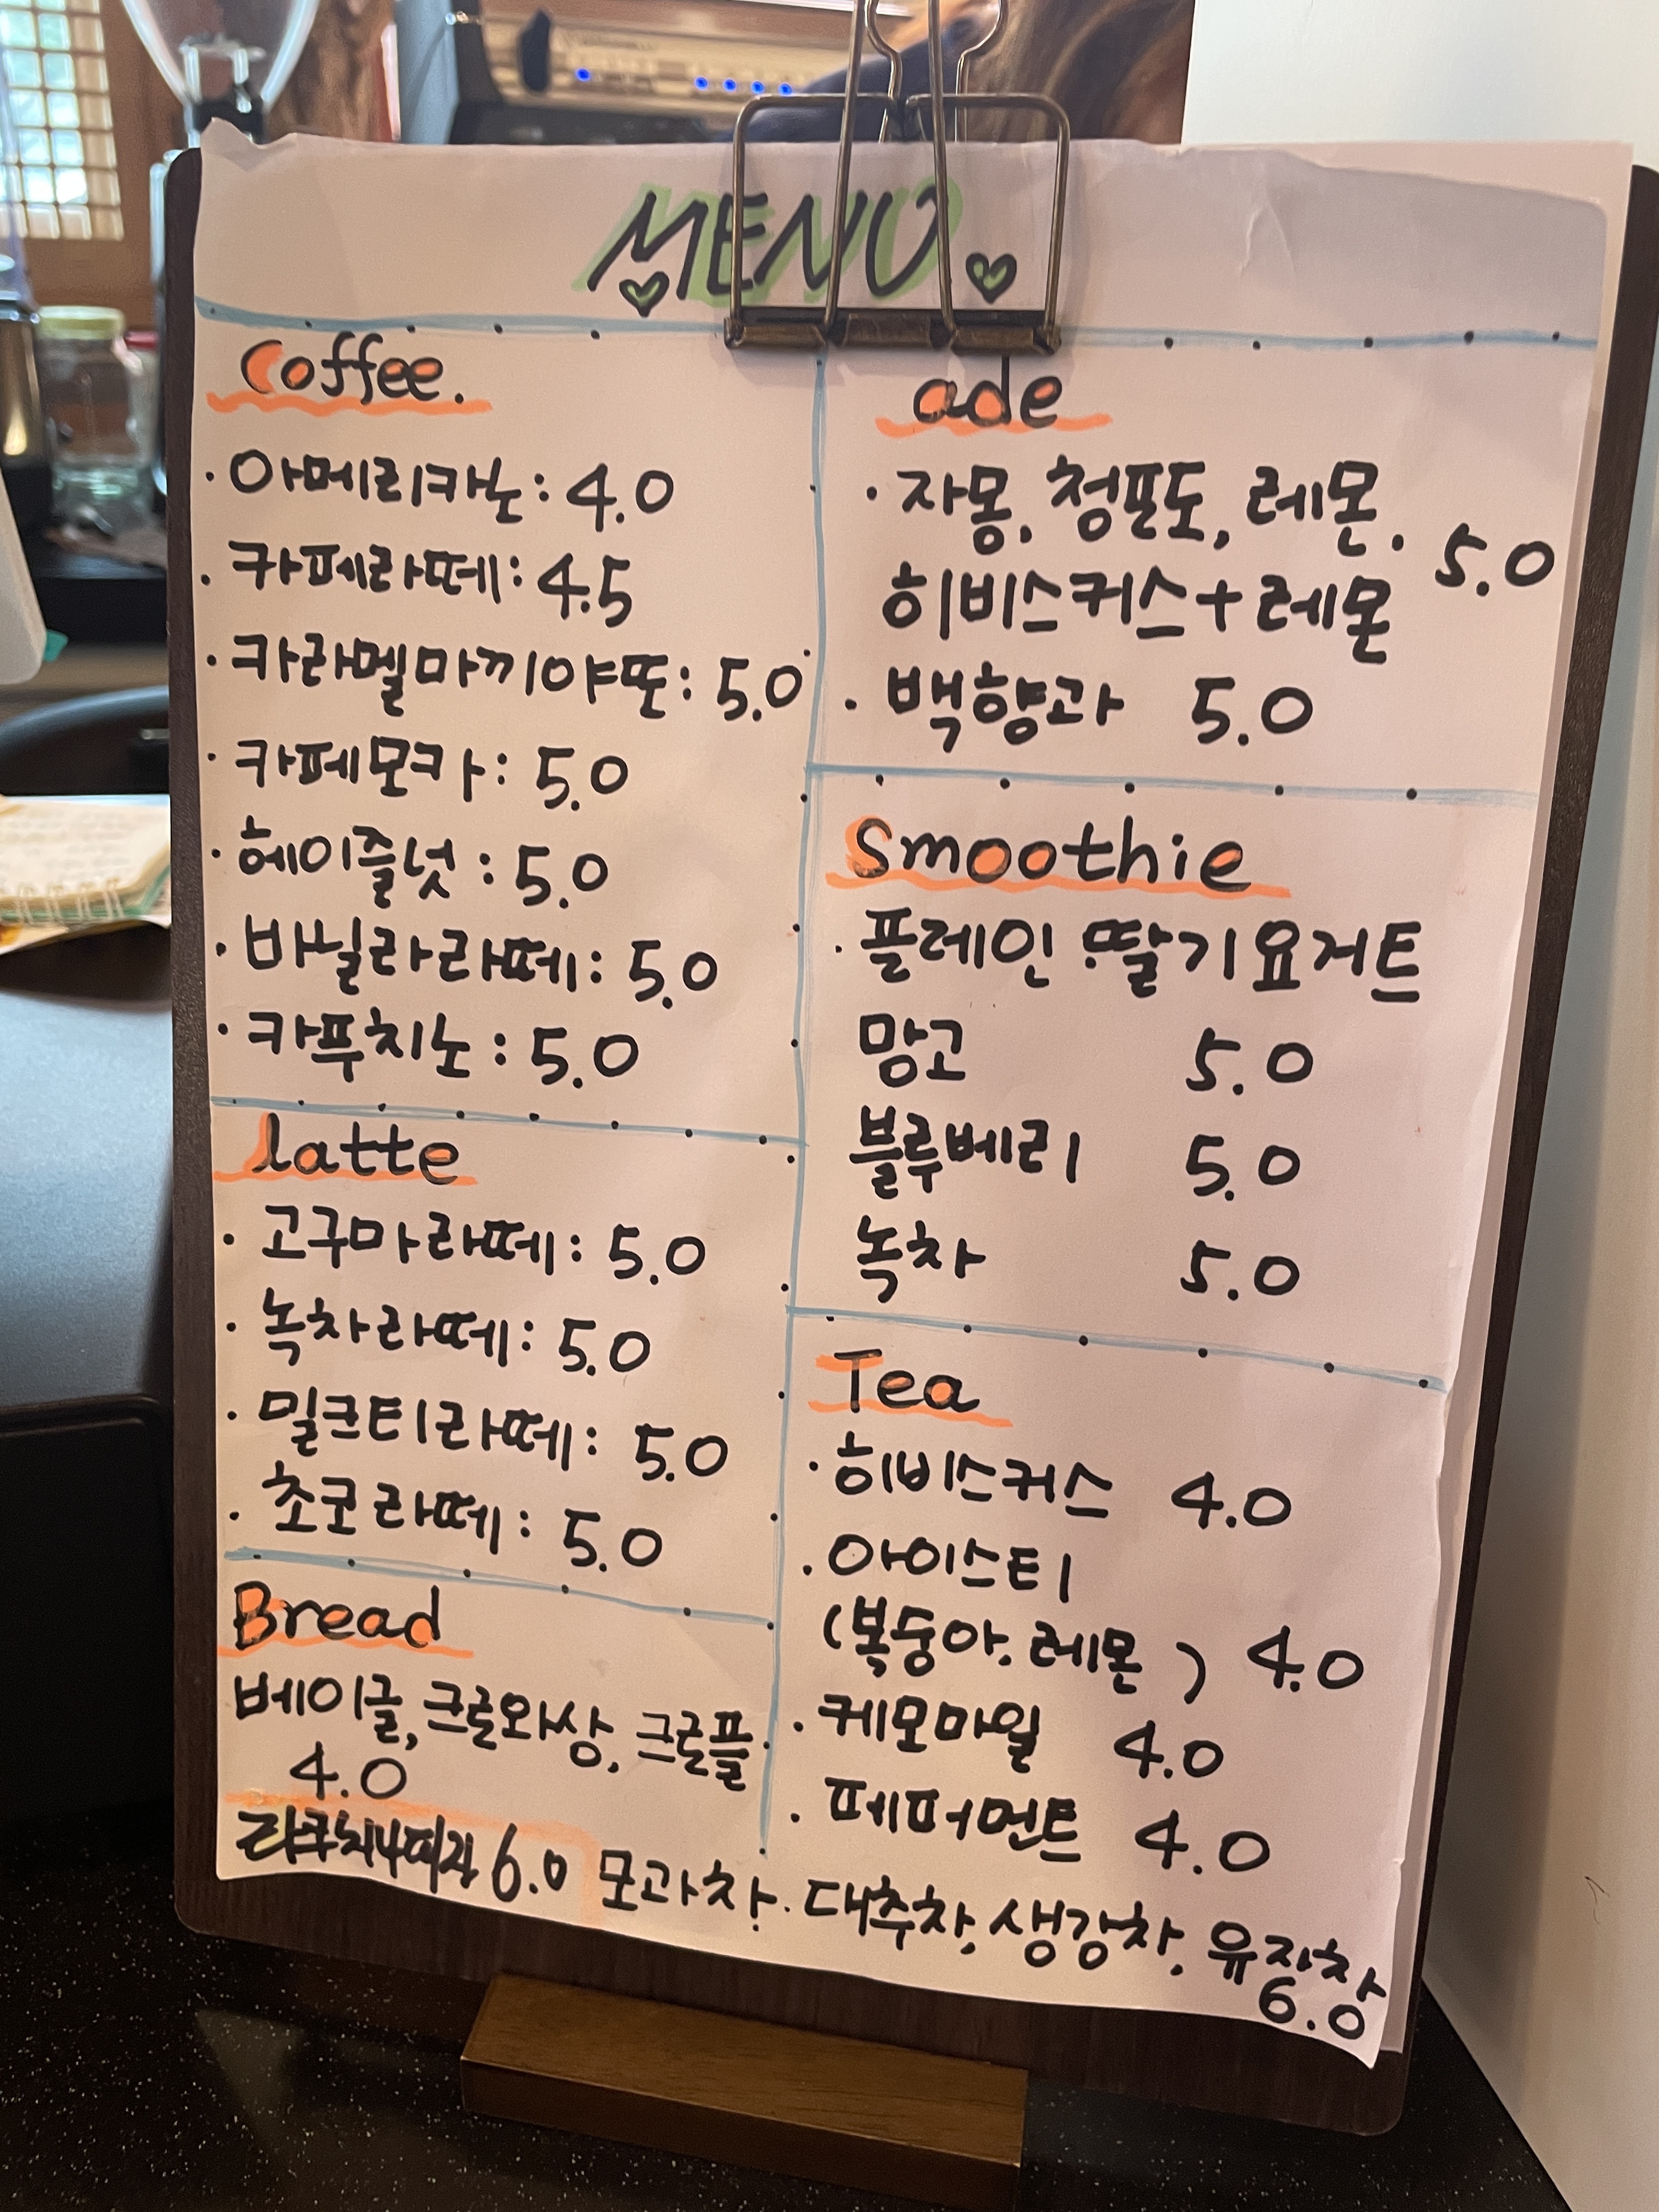 MENU
Coffee.
· 아메리카노 : 4.0
· 카페라떼 : 4.5
· 카라멜마끼야또 : 5.0
· 카페모카 : 5.0
· 헤이즐넛 : 5.0
· 바닐라라떼 : 5.0
· 카푸치노 : 5.0
latte
· 고구마라떼 : 5.0
· 녹차라떼 : 5.0
· 밀크티라떼 : 5.0
· 초코라떼 : 5.0
Bread
베이글, 크로와상, 크로플
4.0
6.0
ade
· 자몽, 청포도, 레몬, 5.0
히비스커스+레몬
· 백향과 5.0
Smoothie
· 플레인 딸기요거트
망고 5.0
블루베리 5.0
녹차 5.0
Tea
· 히비스커스 4.0
· 아이스티
(복숭아. 레몬) 4.0
· 케모마일 4.0
· 페퍼먼트 4.0
모과차. 대추차, 생강차, 유자차
6.0